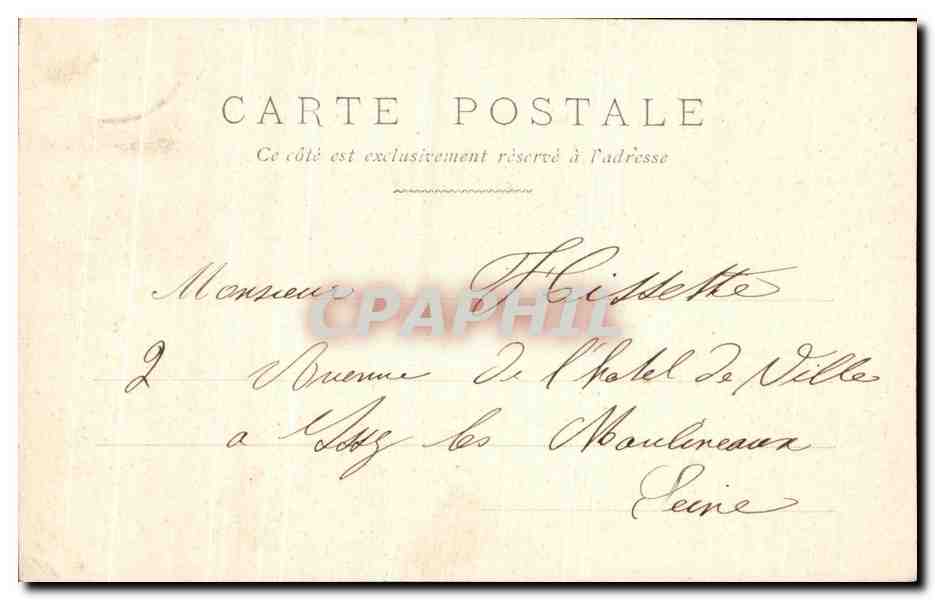 CARTE POSTALE
Ce côté est exclusivement réservé à l'adresse
Monsieur Hissette
CPAPHIL
2 Avenue de l'hotel de Ville
a Issy les Moulineaux
Seine